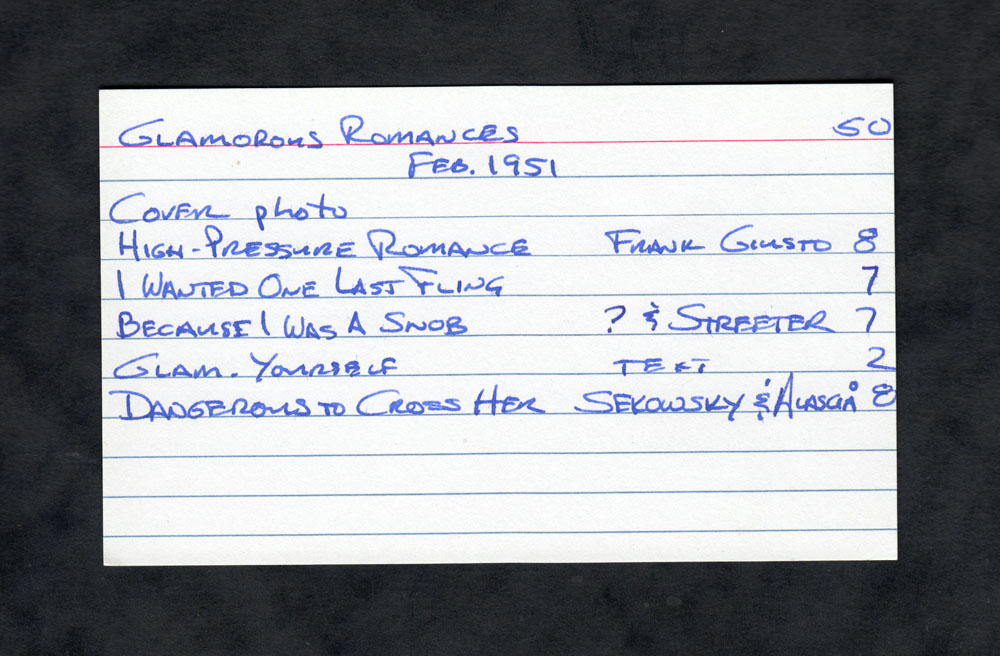 GLAMOROUS ROMANCES 50
FEB. 1951
COVER photo
HIGH-PRESSURE ROMANCE FRANK GIUSTO 8
I WANTED ONE LAST FLING 7
BECAUSE I WAS A SNOB ? & STREETER 7
GLAM. YOURSELF TEXT 2
DANGEROUS TO CROSS HER SEKOWSKY & ALASCIA 8